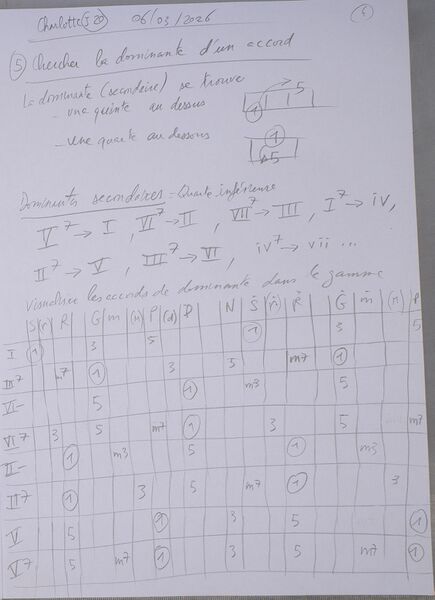 Charlotte (J20) 06/03/2026
⑤ Chercher la dominante d'un accord
La dominante (secondaire) se trouve
- une quinte au dessus ① 5
- une quarte au dessous ① 5
Dominantes secondaires = Quarte inférieure
V7 → I, VI7 → II, VII7 → III, I7 → iv,
II7 → V, III7 → VI, iv7 → vii ...
Visualiser les accords de dominante dans la gamme
S (r) R G m (m) P (d) D N Ṡ (ṙ) Ṙ Ġ ṁ (ṁ) P
I ① 3 5 ① 3 5
III7 m7 ① 3 5 m7 ①
VI- 5 ① m3 5
VI7 3 5 m7 ① 3 5 m7
II- ① m3 5 ① m3
II7 ① 3 5 m7 ① 3
V 5 ① 3 5 ①
V7 5 m7 ① 3 5 m7 ①